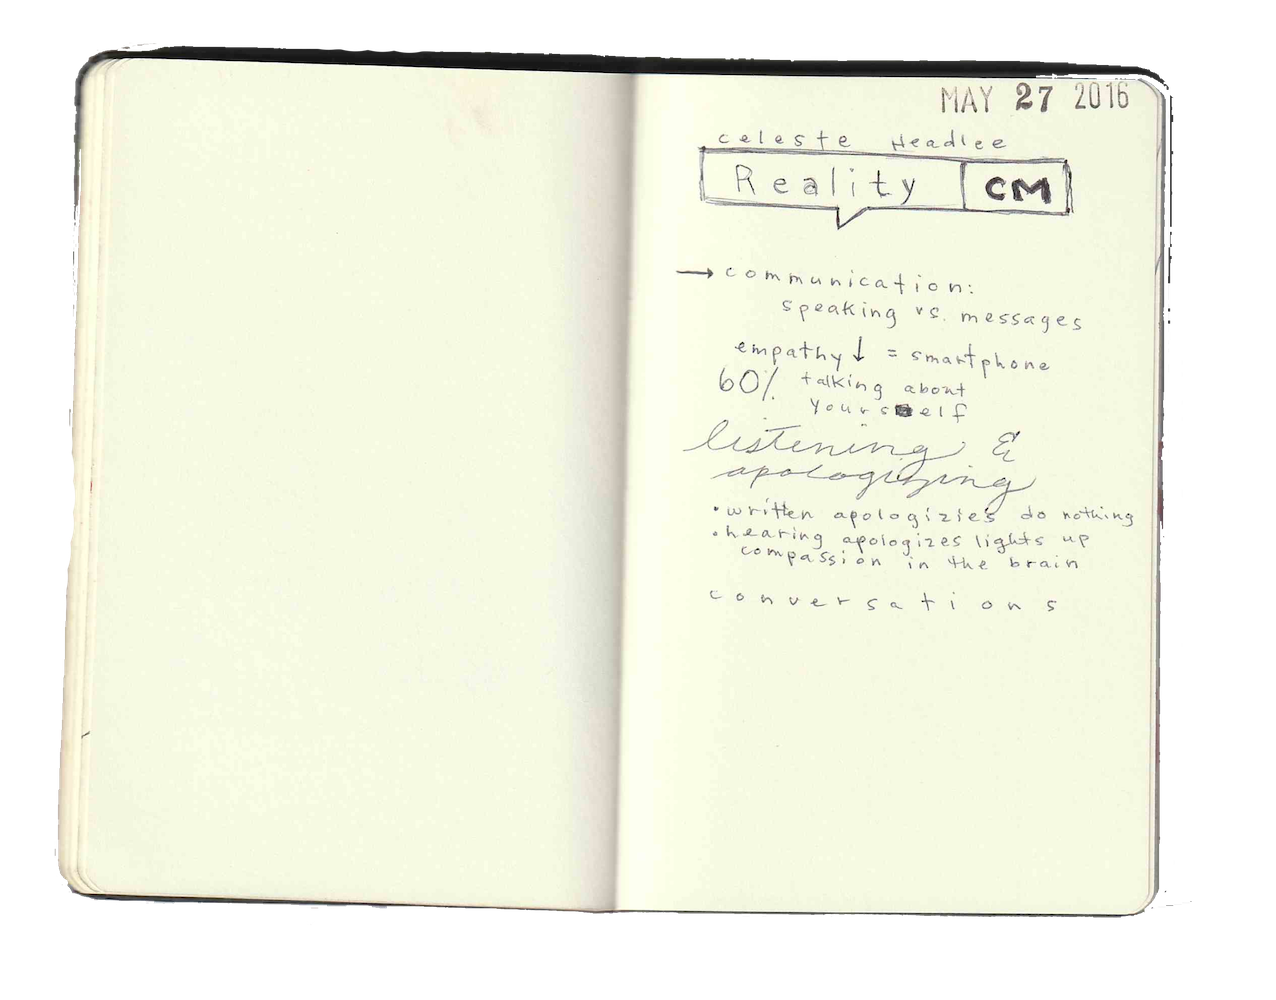 MAY 27 2016
celeste Headlee
Reality CM
→ communication:
speaking vs. messages
empathy ↓ = smartphone
60% talking about
yourself
listening &
apologizing
• written apologizies do nothing
• hearing apologizes lights up
compassion in the brain
conversations